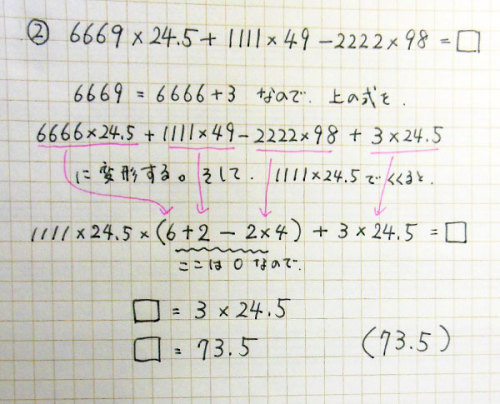 ② 6669×24.5+1111×49−2222×98=□
6669=6666+3 なので、上の式を、
6666×24.5+1111×49−2222×98+3×24.5
に変形する。そして、1111×24.5でくくると、
1111×24.5×(6+2−2×4)+3×24.5=□
ここは0なので、
□=3×24.5
□=73.5 (73.5)